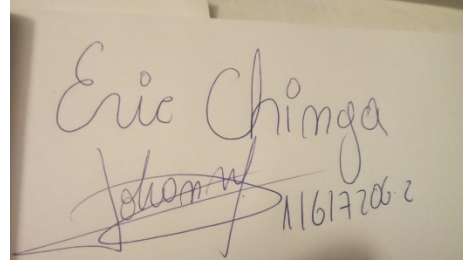 Eric Chinga
Johanny 11617206-2